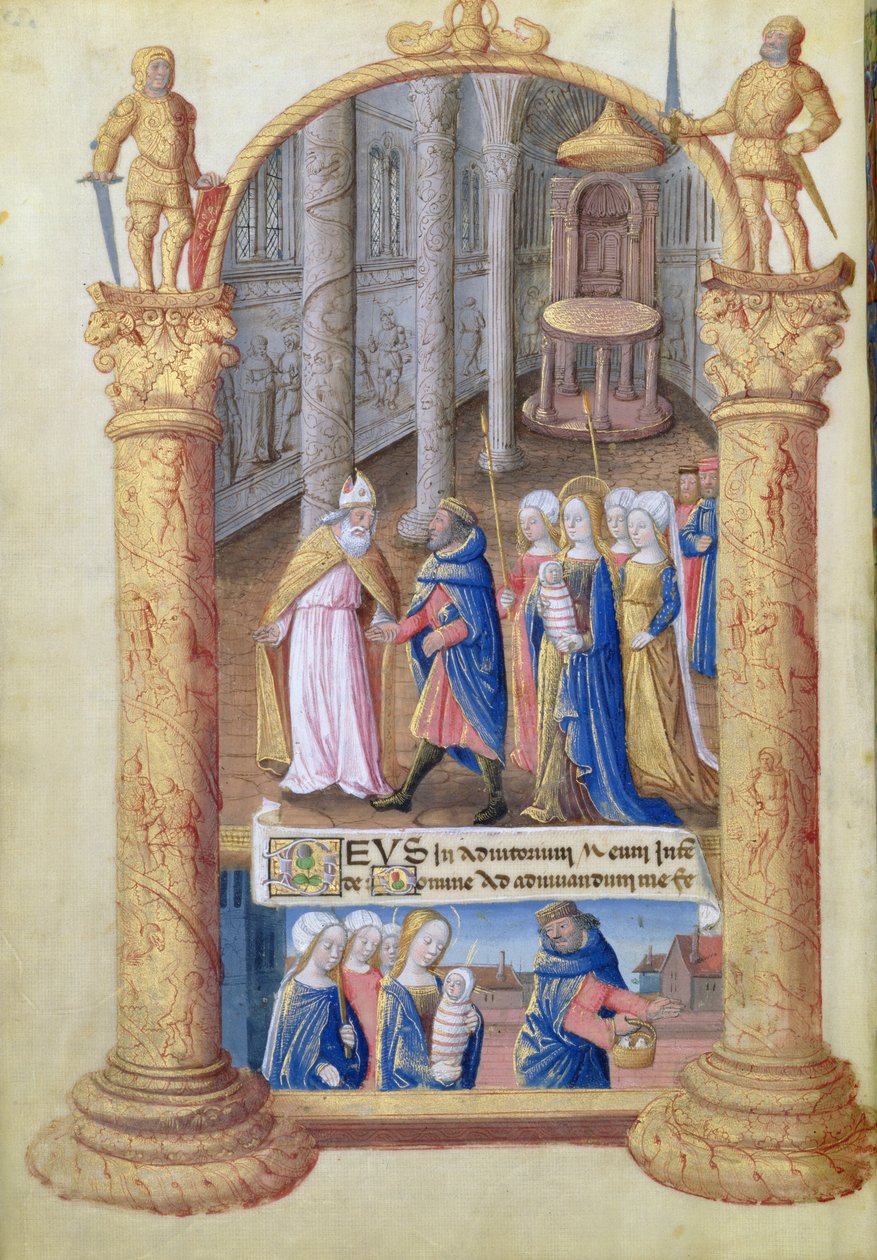 DEUS In Adiutorium Meum Inten
de Domine Ad adiuvandum me fe